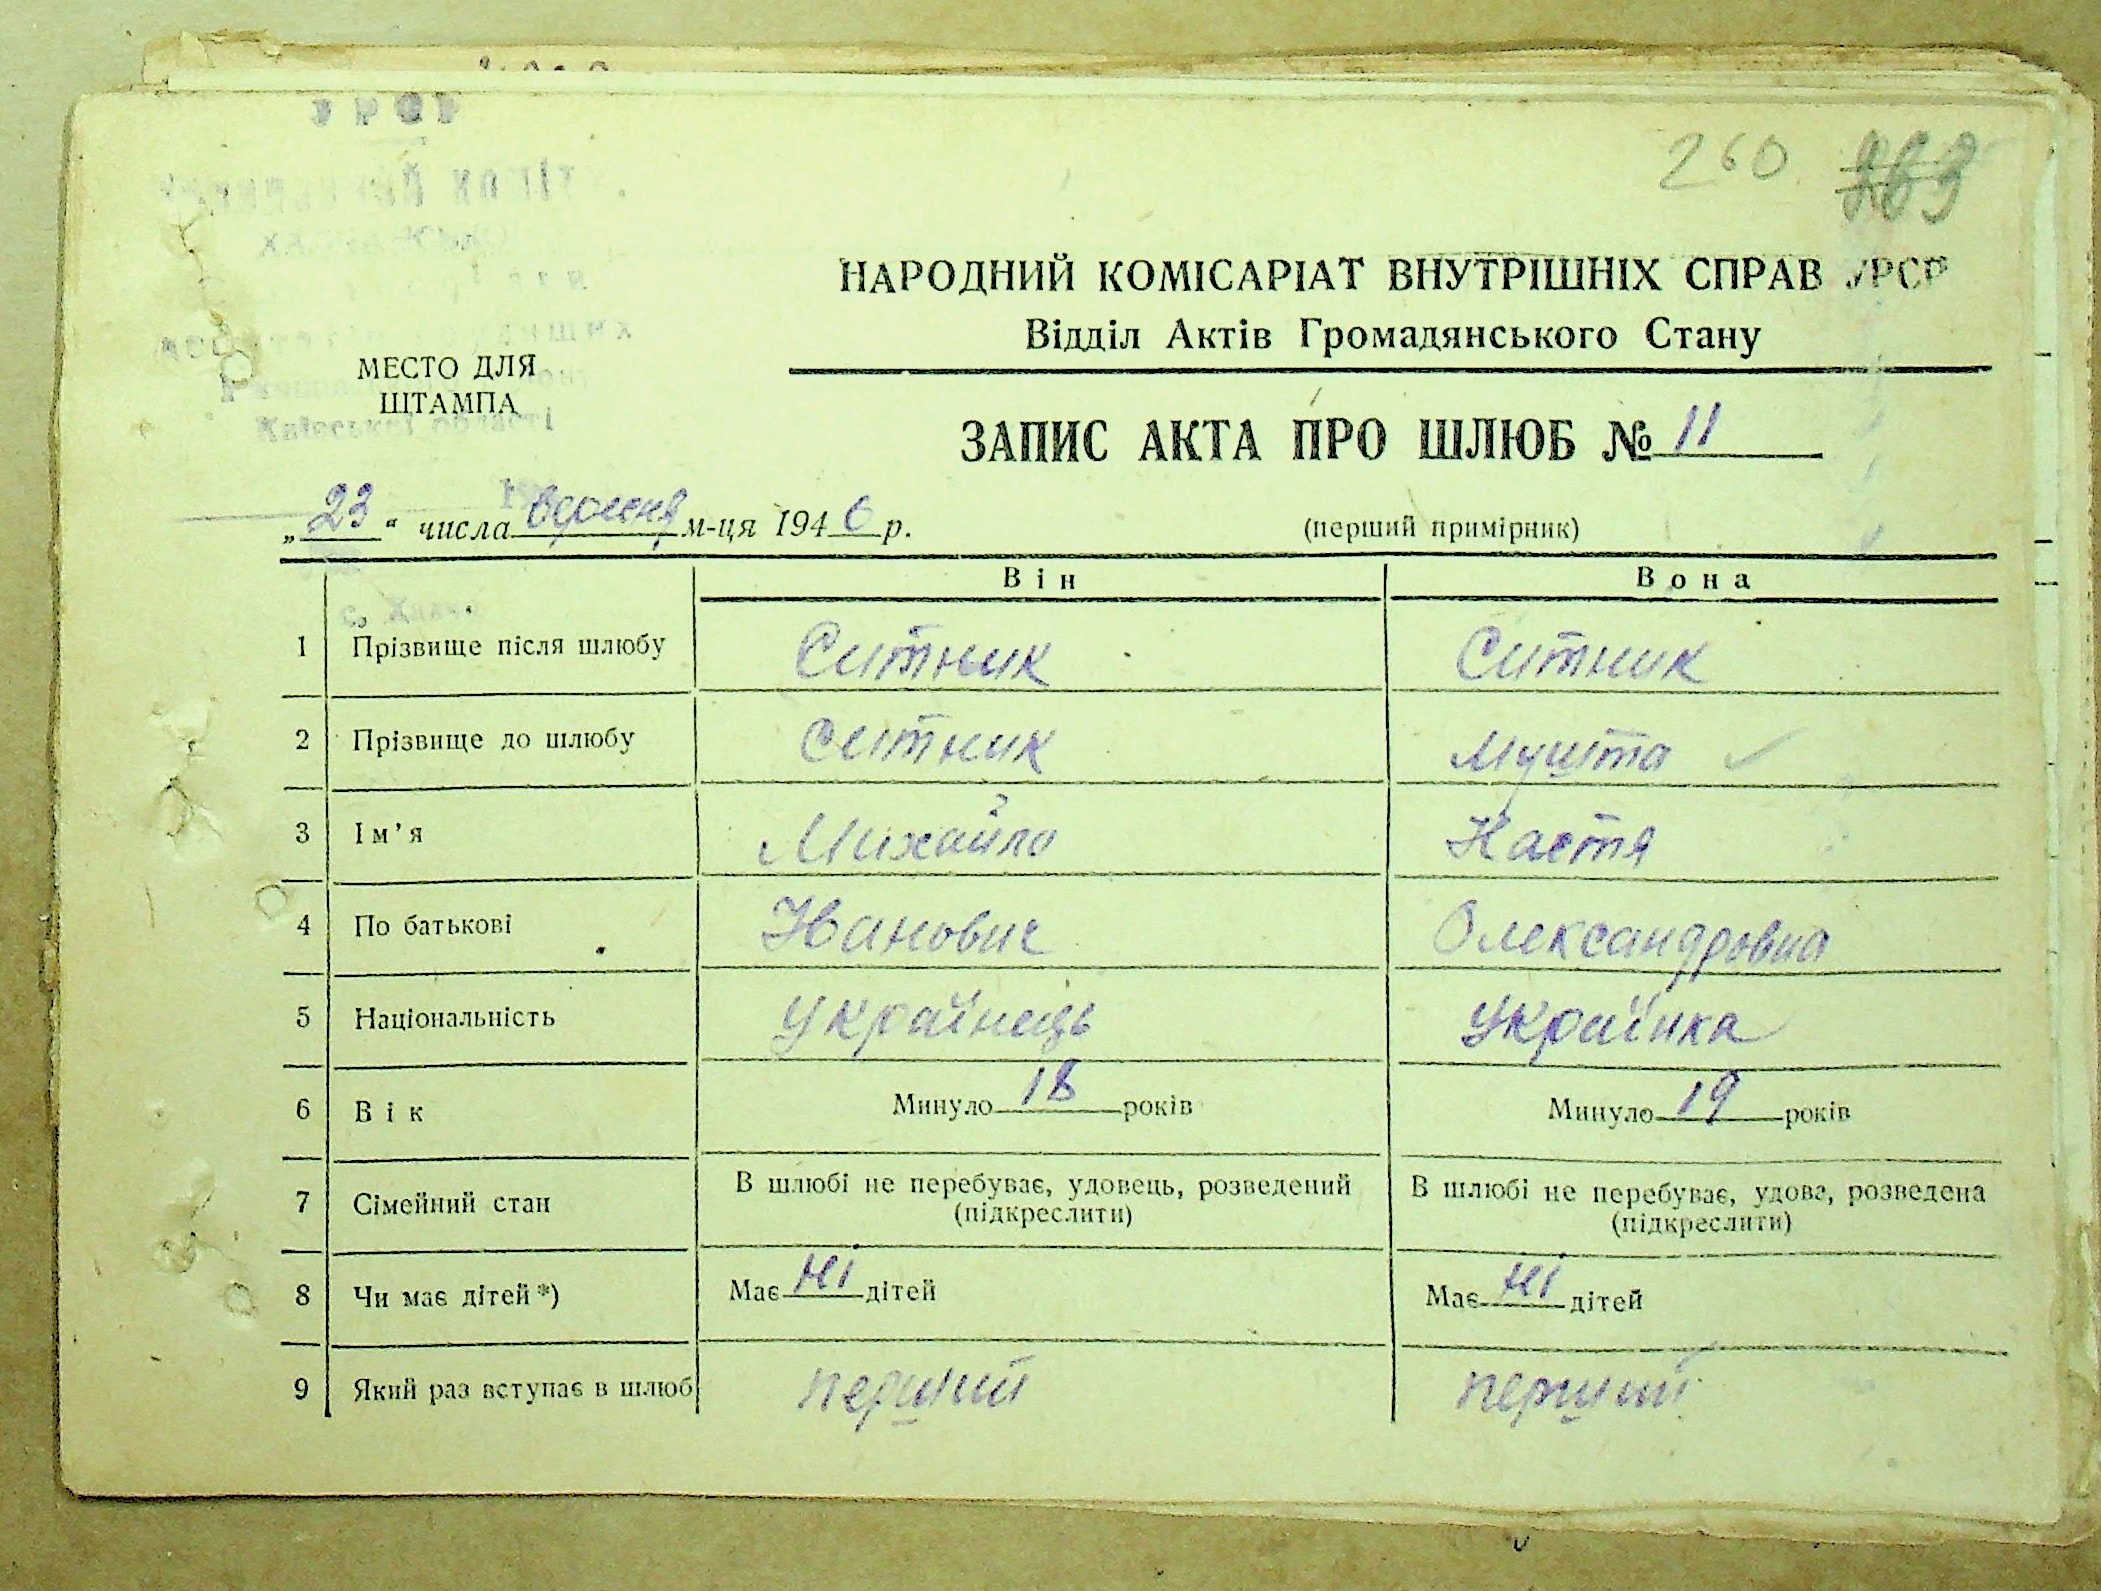 УРСР
260 263
НАРОДНИЙ КОМІСАРІАТ ВНУТРІШНІХ СПРАВ УРСР
Відділ Актів Громадянського Стану
МЕСТО ДЛЯ
ШТАМПА
Київської області
ЗАПИС АКТА ПРО ШЛЮБ № 11
„23“ числа вересня м-ця 1946 р.
(перший примірник)
Він Вона
1 Прізвище після шлюбу Ситник Ситник
2 Прізвище до шлюбу Ситник Мушта
3 Ім’я Михайло Настя
4 По батькові Іванович Олександровна
5 Національність Українець Українка
6 Вік Минуло 18 років Минуло 19 років
7 Сімейний стан В шлюбі не перебуває, удовець, розведений В шлюбі не перебуває, удова, розведена
(підкреслити) (підкреслити)
8 Чи має дітей*) Має ні дітей Має ні дітей
9 Який раз вступає в шлюб перший перший